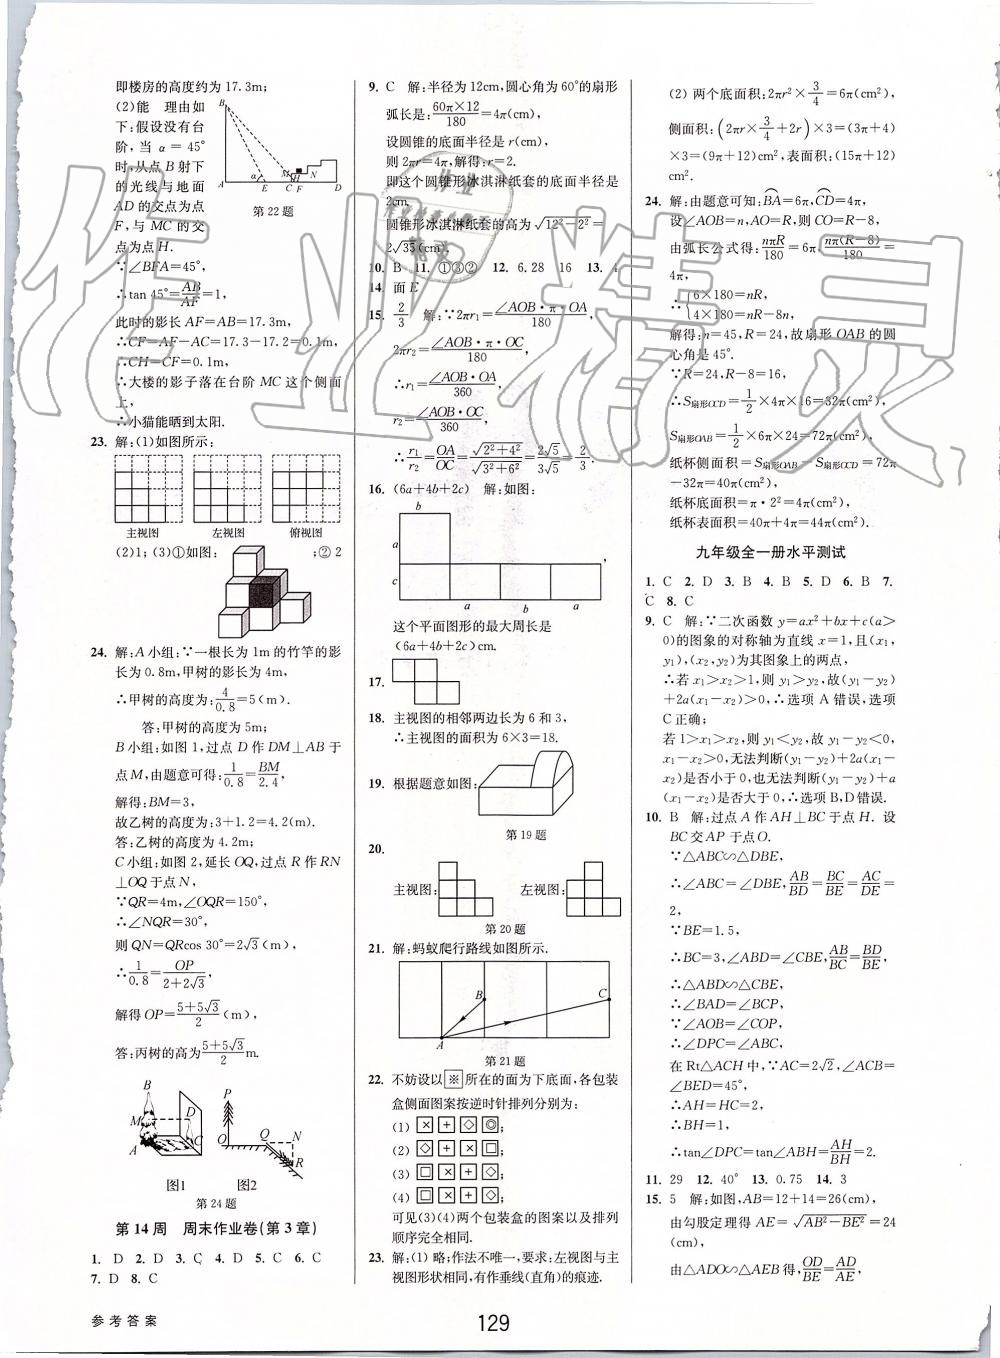 即楼房的高度约为 17.3m;
(2)能 理由如
下:假设没有台
阶,当 α=45°
时,从点 B 射下
的光线与地面
AD 的交点为点
F,与 MC 的交
点为点 H.
B
α
M
H
N
A
E
C
F
D
第 22 题
∵∠BFA=45°,
∴tan 45°=AB/AF=1,
此时的影长 AF=AB=17.3m,
∴CF=AF-AC=17.3-17.2=0.1m,
∴CH=CF=0.1m,
∴大楼的影子落在台阶 MC 这个侧面
上,
∴小猫能晒到太阳.
23. 解:(1)如图所示:
主视图 左视图 俯视图
(2)1; (3)①如图: ;② 2
24. 解:A 小组:∵一根长为 1m 的竹竿的影
长为 0.8m,甲树的影长为 4m,
∴甲树的高度为:4/0.8=5(m).
答:甲树的高度为 5m;
B 小组:如图 1,过点 D 作 DM⊥AB 于
点 M,由题意可得:1/0.8=BM/2.4,
解得:BM=3,
故乙树的高度为:3+1.2=4.2(m).
答:乙树的高度为 4.2m;
C 小组:如图 2,延长 OQ,过点 R 作 RN
⊥OQ 于点 N,
∵QR=4m,∠OQR=150°,
∴∠NQR=30°,
则 QN=QRcos 30°=2√3(m),
∴1/0.8=OP/(2+2√3),
解得 OP=(5+5√3)/2(m),
答:丙树的高为(5+5√3)/2 m.
B
M
D
A
C
P
O
Q
N
R
图1 图2
第 24 题
第 14 周 周末作业卷(第 3 章)
1. D 2. D 3. C 4. D 5. C 6. C
7. D 8. C
9. C 解:半径为 12cm,圆心角为 60°的扇形
弧长是:60π×12/180=4π(cm),
设圆锥的底面半径是 r(cm),
则 2πr=4π,解得:r=2.
即这个圆锥形冰淇淋纸套的底面半径是
2cm.
圆锥形冰淇淋纸套的高为 √(12²-2²)=
2√35(cm).
10. B 11. ①③② 12. 6.28 16 13.
14. 面 E
15. 2/3 解:∵2πr₁=∠AOB·π·OA/180,
2πr₂=∠AOB·π·OC/180,
∴r₁=∠AOB·OA/360,
r₂=∠AOB·OC/360,
∴r₁/r₂=OA/OC=√(2²+4²)/√(3²+6²)=2√5/3√5=2/3.
16. (6a+4b+2c) 解:如图:
b
a
c
a
b
a
,
这个平面图形的最大周长是
(6a+4b+2c)cm.
17.
18. 主视图的相邻两边长为 6 和 3,
∴主视图的面积为 6×3=18.
19. 根据题意如图:
第 19 题
20.
主视图: 左视图:
第 20 题
21. 解:蚂蚁爬行路线如图所示.
B
C
A
第 21 题
22. 不妨设以※所在的面为下底面,各包装
盒侧面图案按逆时针排列分别为:
(1) × + ◇ ◎;
(2) ◇ + × □;
(3) □ × + ◇;
(4) □ × + ◇;
可见(3)(4)两个包装盒的图案以及排列
顺序完全相同.
23. 解:(1) 略;作法不唯一,要求:左视图与主
视图形状相同,有作垂线(直角)的痕迹.
(2) 两个底面积:2πr²×3/4=6π(cm²),
侧面积:(2πr×3/4+2r)×3=(3π+4)
×3=(9π+12)cm²,表面积:(15π+12)
cm².
24. 解:由题意可知:BA=6π,CD=4π,
设∠AOB=n,AO=R,则 CO=R-8,
由弧长公式得:nπR/180=6π,nπ(R-8)/180=
4π,
∴{6×180=nR,
4×180=nR-8n,
解得:n=45,R=24,故扇形 OAB 的圆
心角是 45°.
∵R=24,R-8=16,
∴S扇形OCD=1/2×4π×16=32π(cm²),
S扇形OAB=1/2×6π×24=72π(cm²),
纸杯侧面积=S扇形OAB-S扇形OCD=72π
-32π=40π(cm²),
纸杯底面积=π·2²=4π(cm²),
纸杯表面积=40π+4π=44π(cm²).
九年级全一册水平测试
1. C 2. D 3. B 4. B 5. D 6. B 7.
C 8. C
9. C 解:∵二次函数 y=ax²+bx+c(a>
0)的图象的对称轴为直线 x=1,且(x₁,
y₁),(x₂,y₂)为其图象上的两点,
∴若 x₁>x₂>1,则 y₁>y₂,故(y₁-y₂)
+2a(x₁-x₂)>0,∴选项 A 错误,选项
C 正确;
若 1>x₁>x₂,则 y₁<y₂,故 y₁-y₂<0,
x₁-x₂>0,无法判断(y₁-y₂)+2a(x₁-
x₂)是否小于 0,也无法判断(y₁-y₂)+a
(x₁-x₂)是否大于 0,∴选项 B,D 错误.
10. B 解:过点 A 作 AH⊥BC 于点 H. 设
BC 交 AP 于点 O.
∵△ABC∽△DBE,
∴∠ABC=∠DBE,AB/BD=BC/BE=AC/DE=
2,
∵BE=1.5,
∴BC=3,∠ABD=∠CBE,AB/BC=BD/BE,
∴△ABD∽△CBE,
∴∠BAD=∠BCP,
∵∠AOB=∠COP,
∴∠DPC=∠ABC,
在 Rt△ACH 中,∵AC=2√2,∠ACB=
∠BED=45°,
∴AH=HC=2,
∴BH=1,
∴tan∠DPC=tan∠ABH=AH/BH=2.
11. 29 12. 40° 13. 0.75 14. 3
15. 5 解:如图,AB=12+14=26(cm),
由勾股定理得 AE=√(AB²-BE²)=24
(cm),
由△ADO∽△AEB 得,OD/BE=AD/AE,
参考答案
129
作业精灵